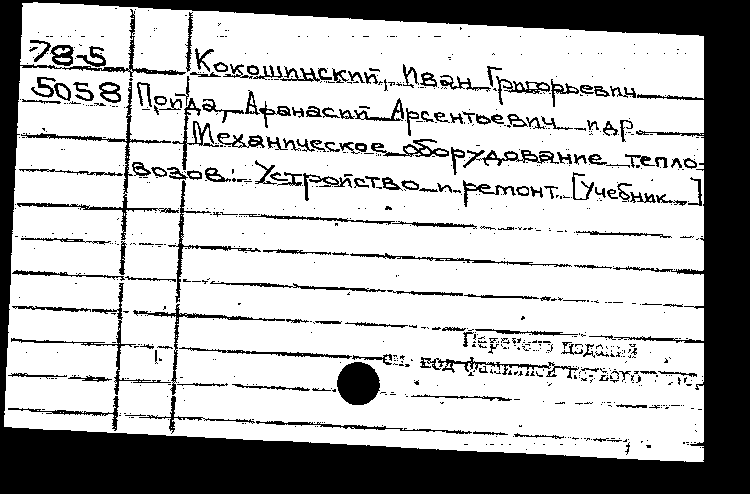 78-5 Кокошинский, Иван Григорьевич
5058 Пойда, Афанасий Арсентьевич и др.
Механическое оборудование тепло-
возов: Устройство и ремонт. [Учебник...]
Перечень изданий
см. под фамилией первого